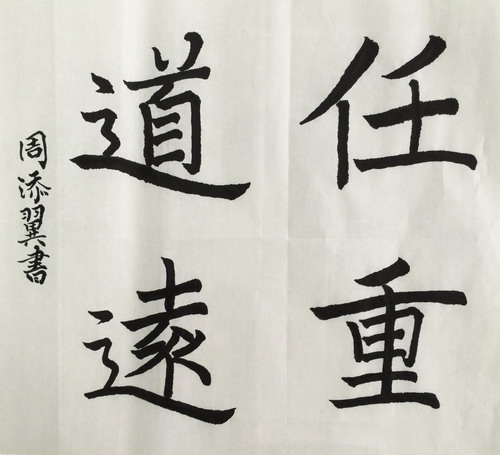 任重
道遠
周添翼書